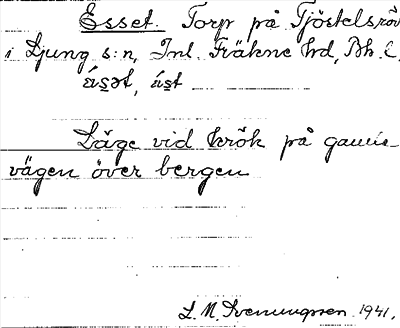 Esset. Torp på Tjöstelsröd
i Ljung s:n, Inl. Fräkne hd, Bh. l.
ásət, ást
Läge vid krök på gamla
vägen över bergen
L. M. Svenungsson 1941.